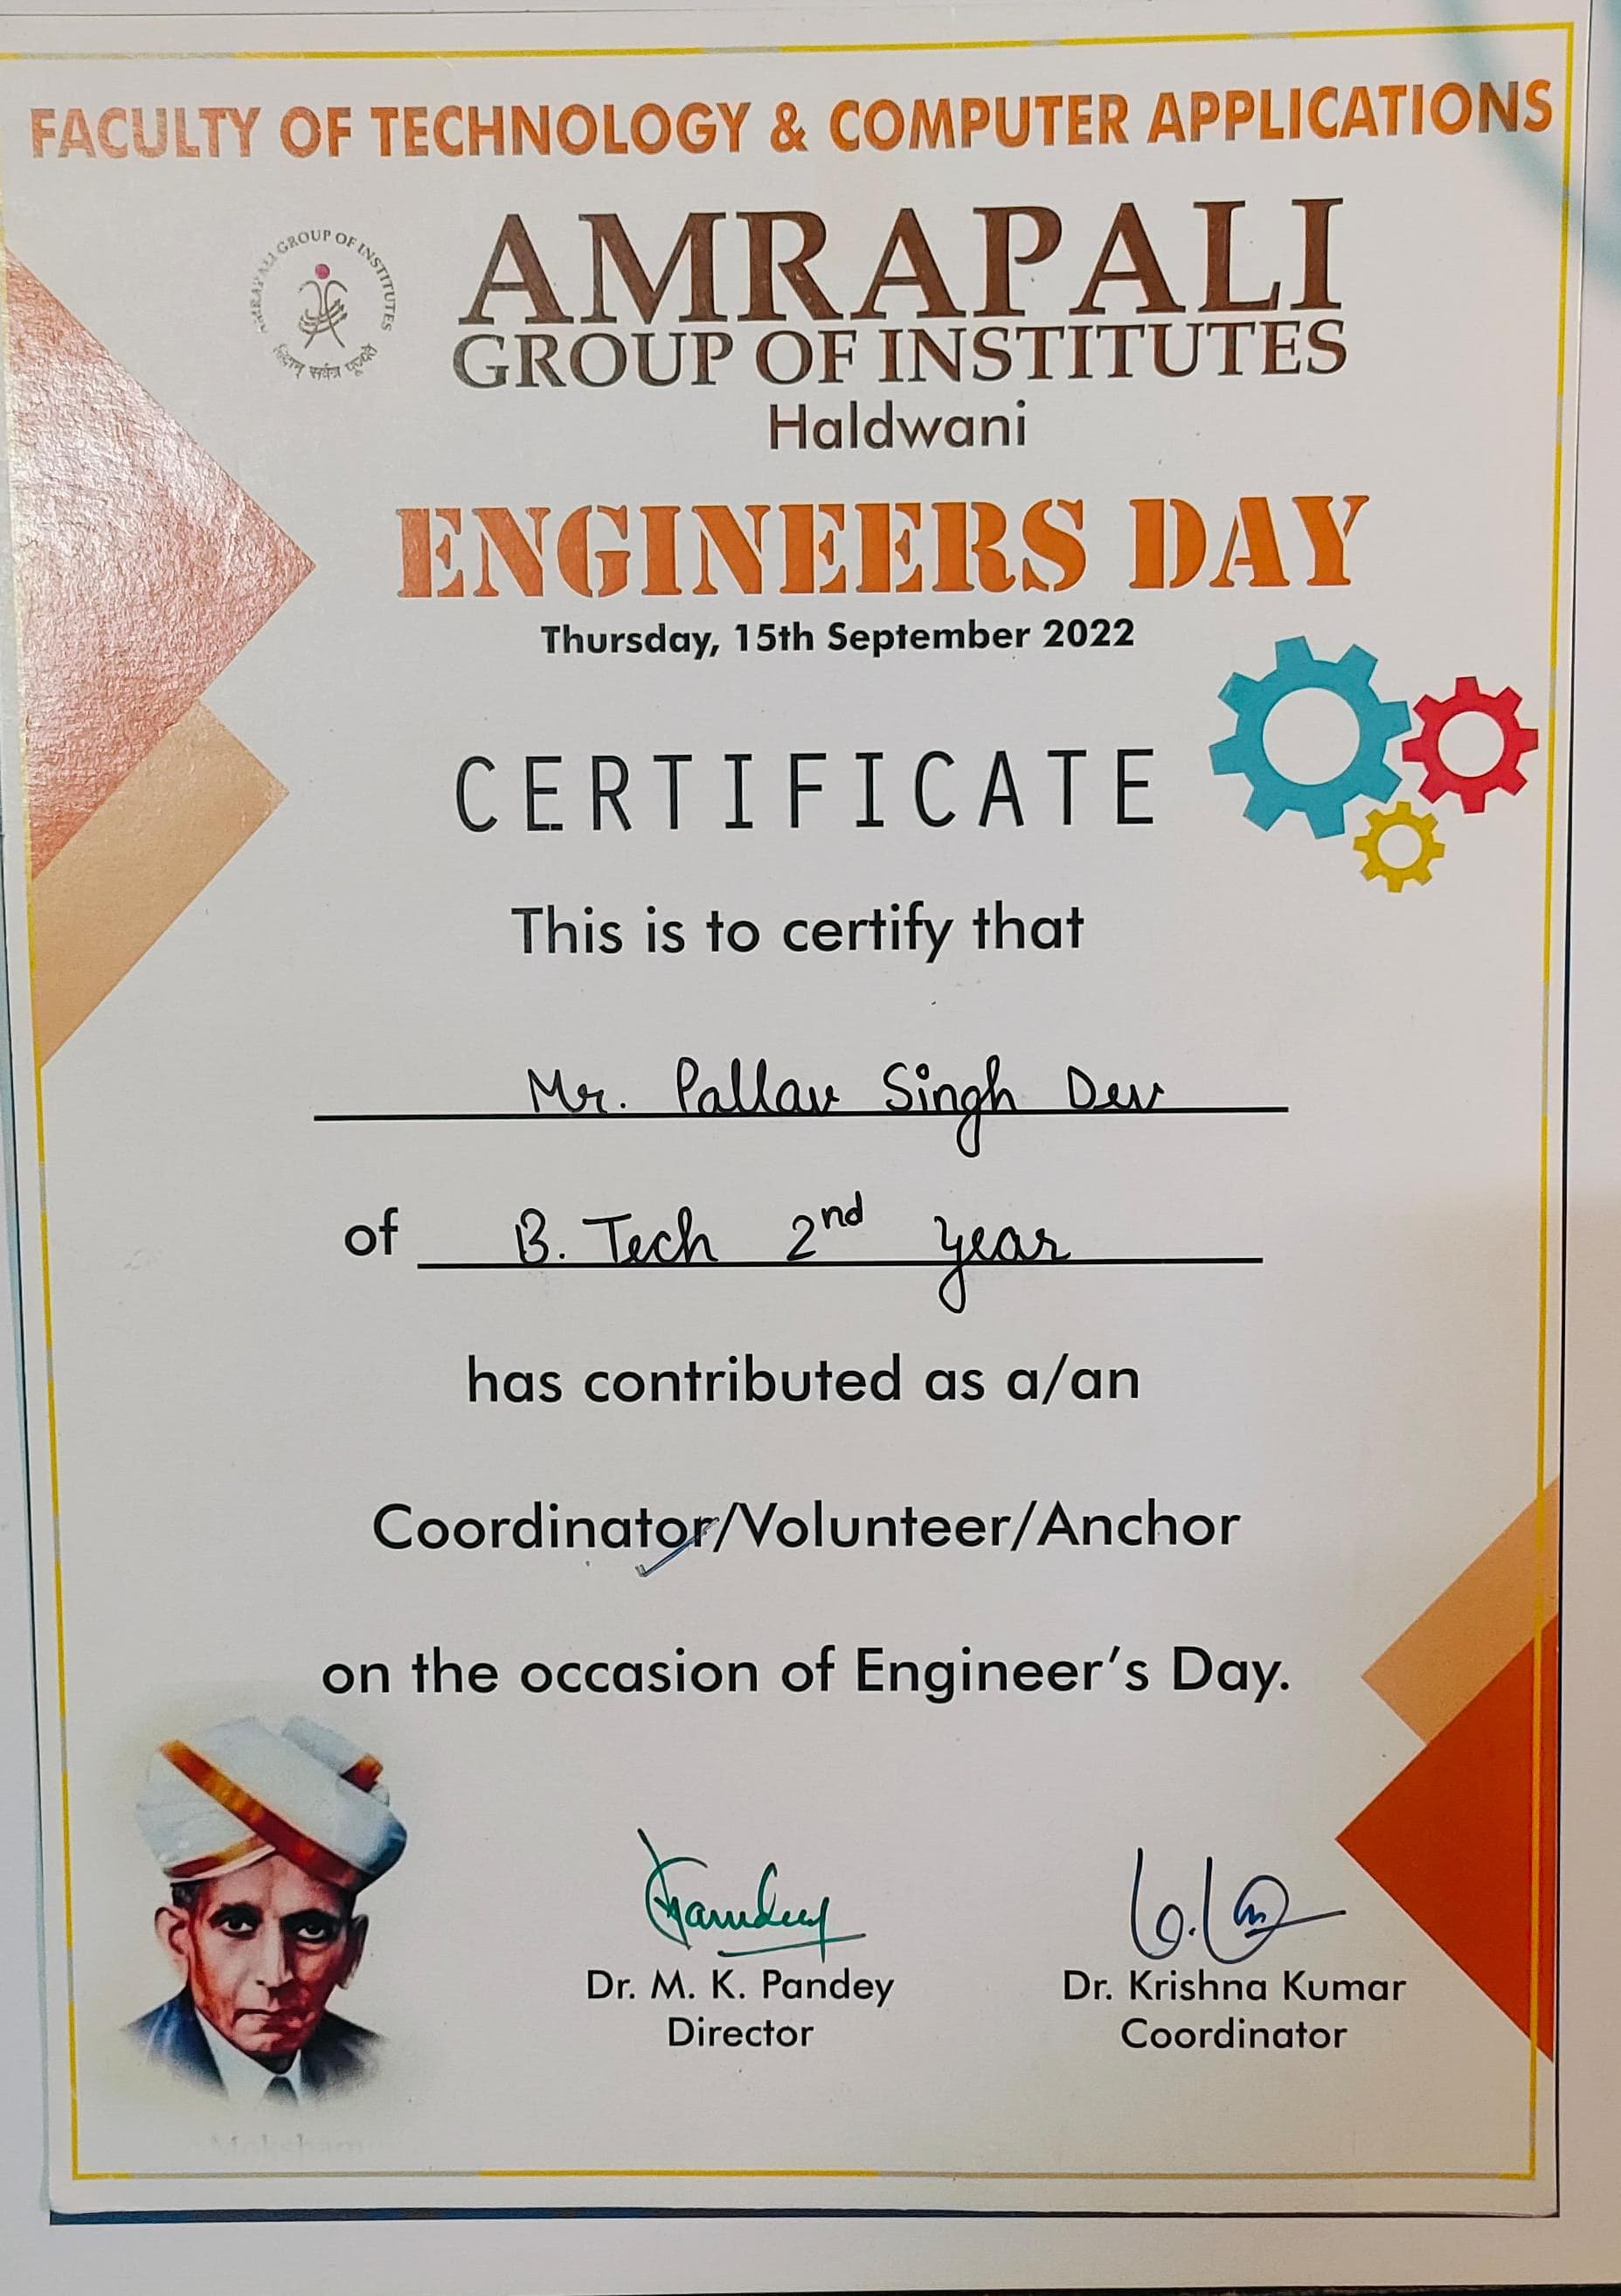 FACULTY OF TECHNOLOGY & COMPUTER APPLICATIONS
AMRAPALI GROUP OF INSTITUTES
AMRAPALI
GROUP OF INSTITUTES
Haldwani
ENGINEERS DAY
Thursday, 15th September 2022
CERTIFICATE
This is to certify that
Mr. Pallav Singh Dev
of B. Tech 2nd year
has contributed as a/an
Coordinator/Volunteer/Anchor
on the occasion of Engineer's Day.
Dr. M. K. Pandey
Director
Dr. Krishna Kumar
Coordinator